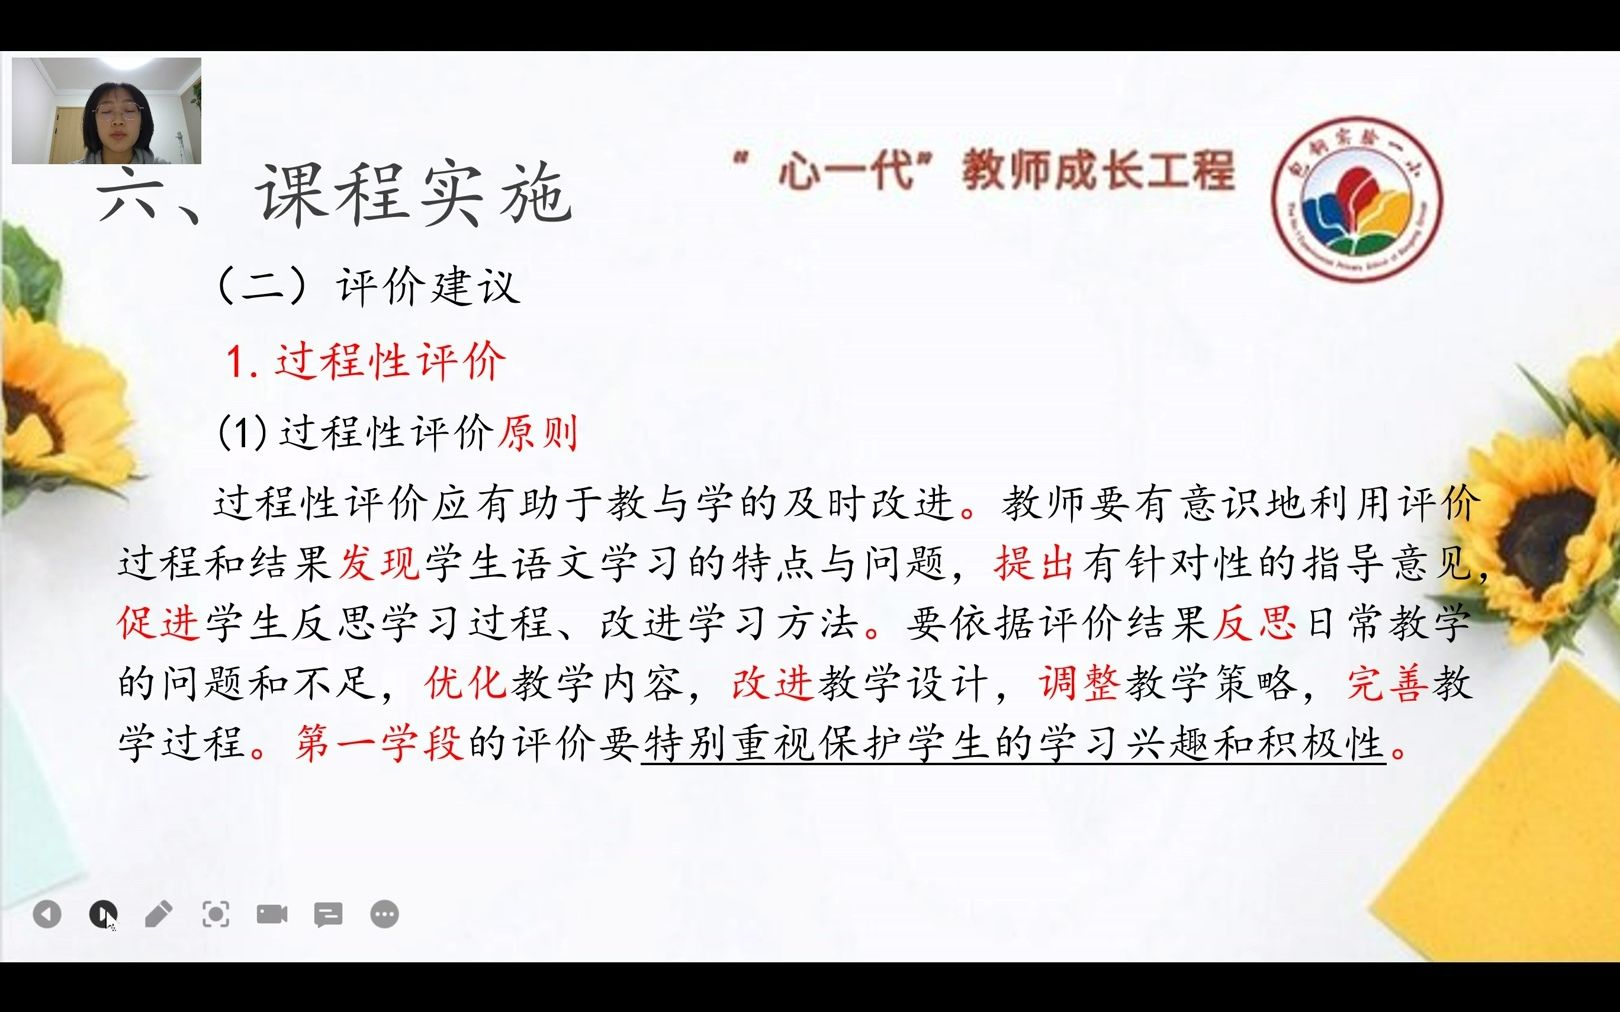 六、课程实施
“心一代”教师成长工程
包钢实验一小
（二）评价建议
1.过程性评价
(1)过程性评价原则
过程性评价应有助于教与学的及时改进。教师要有意识地利用评价
过程和结果发现学生语文学习的特点与问题，提出有针对性的指导意见，
促进学生反思学习过程、改进学习方法。要依据评价结果反思日常教学
的问题和不足，优化教学内容，改进教学设计，调整教学策略，完善教
学过程。第一学段的评价要特别重视保护学生的学习兴趣和积极性。